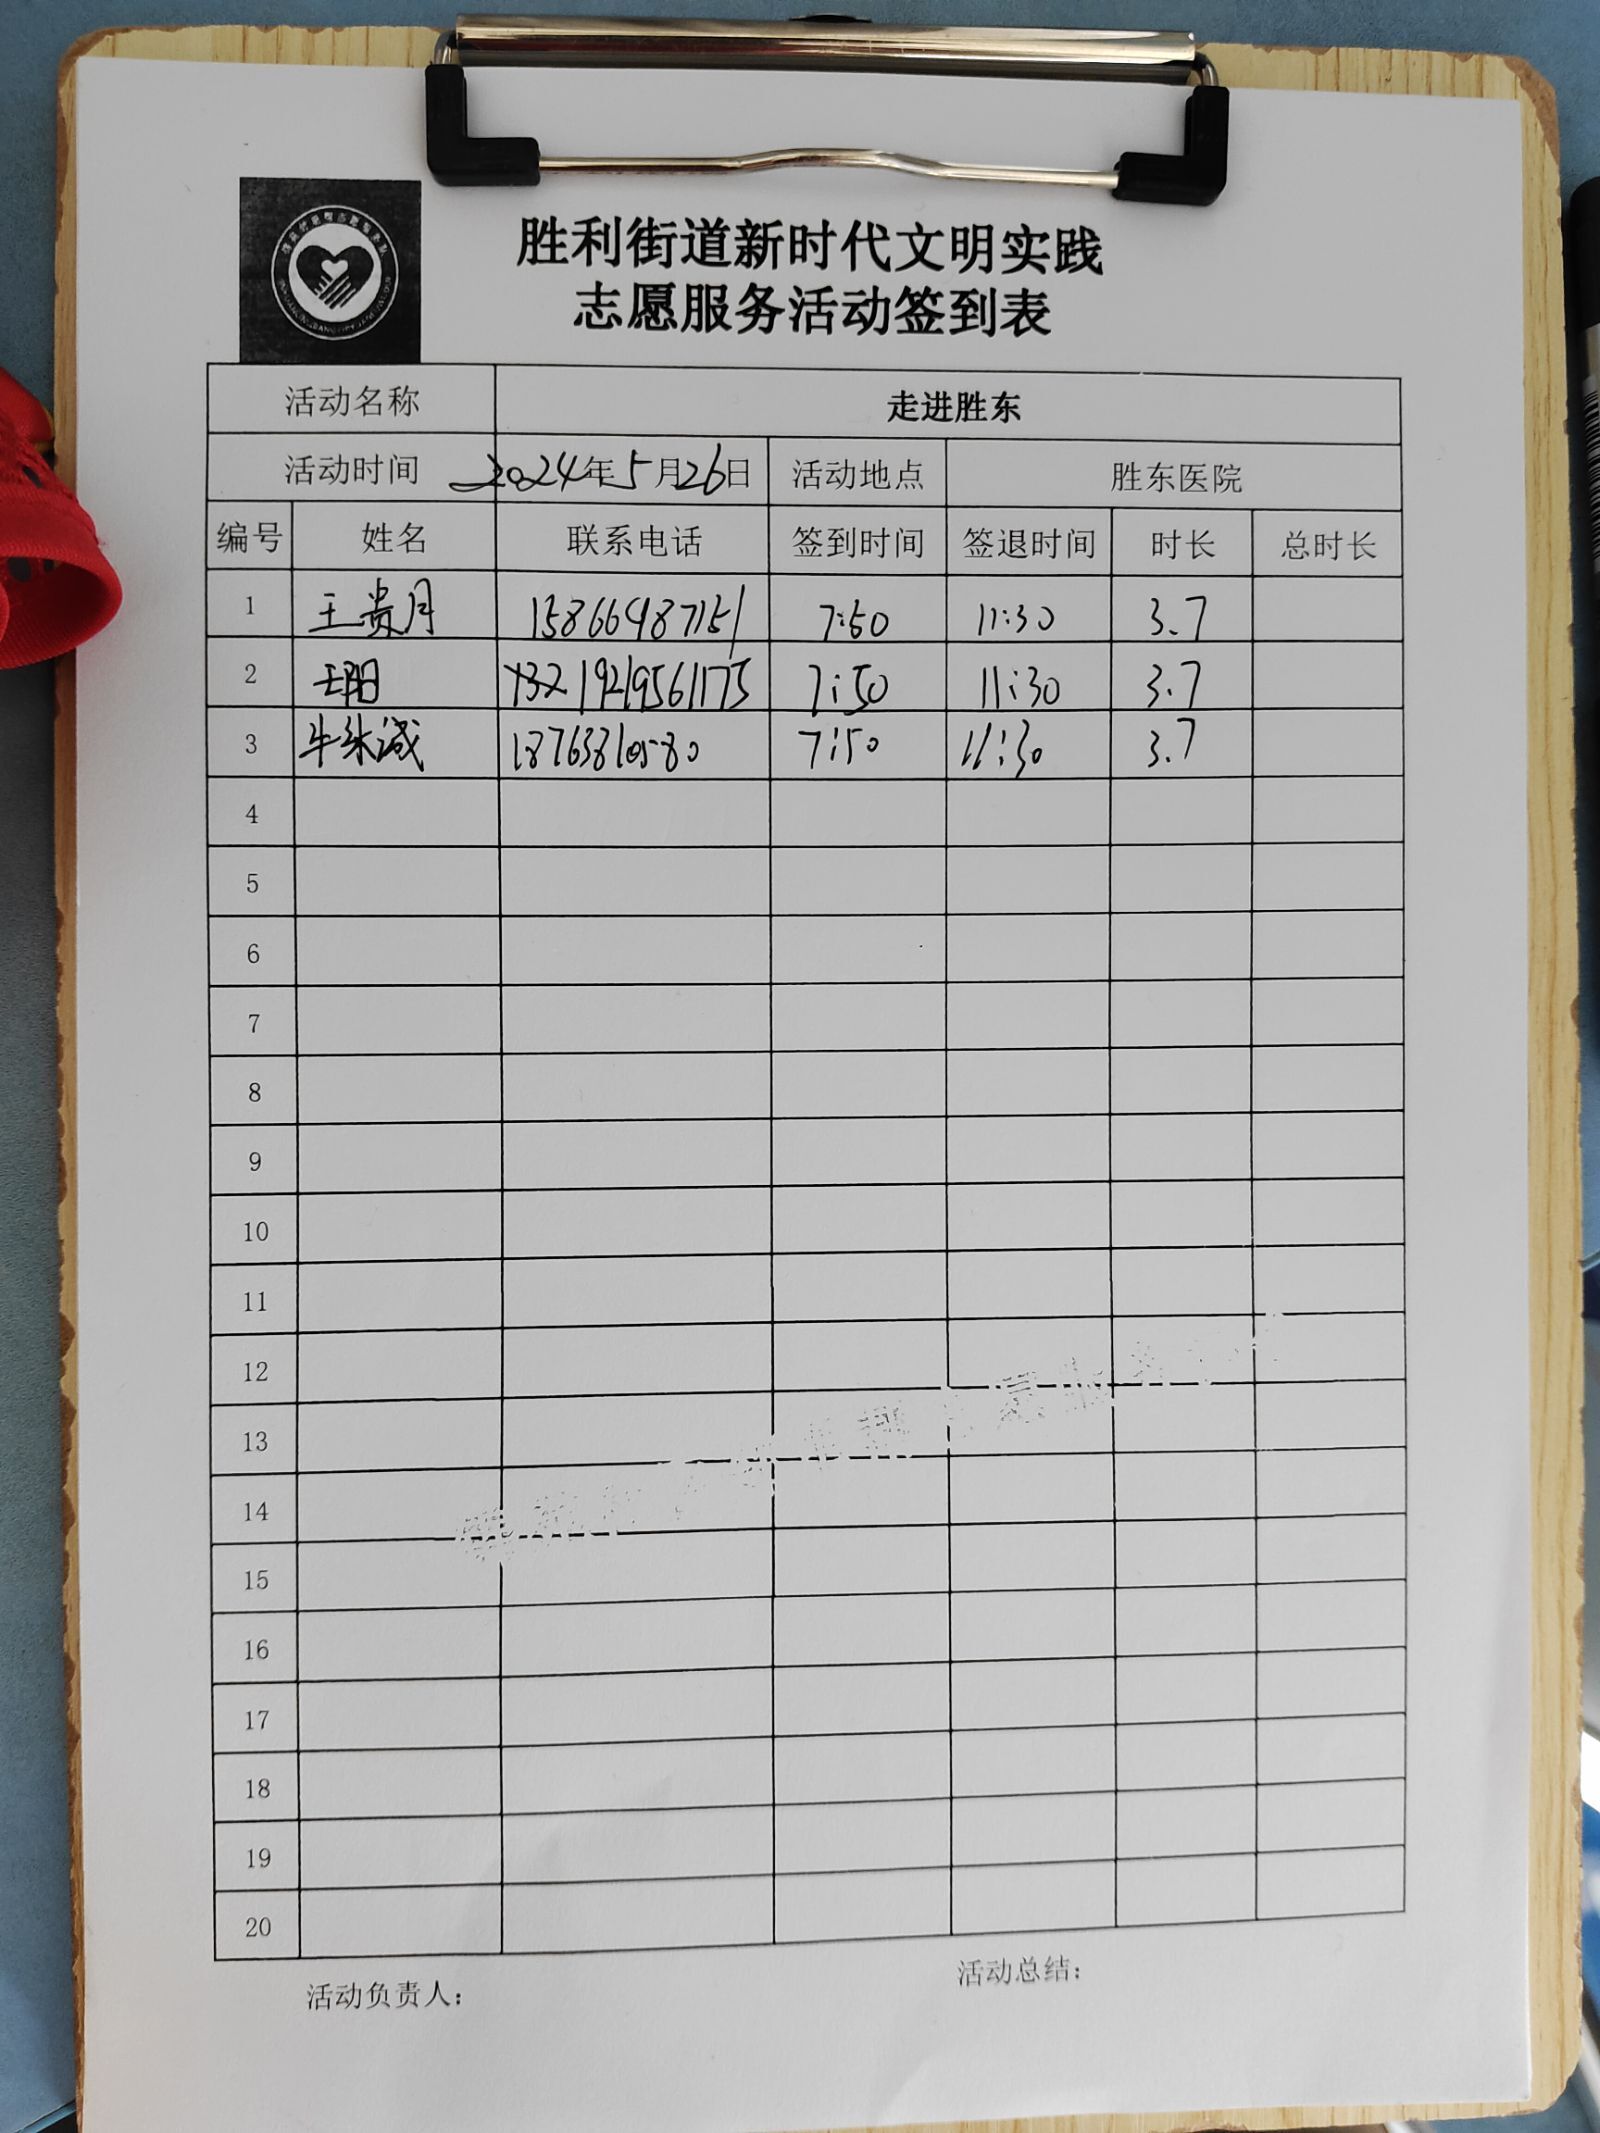 胜利街道新时代文明实践
志愿服务活动签到表
活动名称 走进胜东
活动时间 2024年5月26日 活动地点 胜东医院
编号 姓名 联系电话 签到时间 签退时间 时长 总时长
1 王贵月 15866487151 7:50 11:30 3.7
2 王阳 19219561175 7:50 11:30 3.7
3 牛 诚 18763810580 7:50 11:30 3.7
4
5
6
7
8
9
10
11
12
13
14
15
16
17
18
19
20
活动负责人： 活动总结：